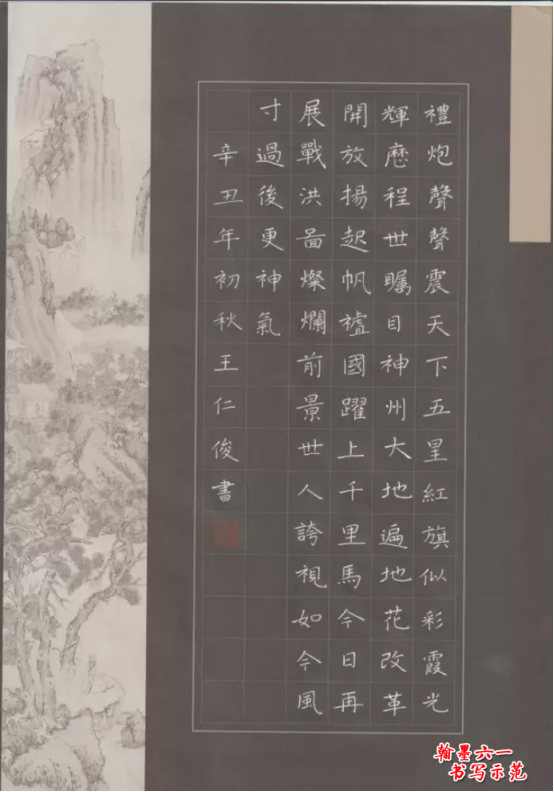 禮炮聲聲震天下五星紅旗似彩霞光
輝歷程世矚目神州大地遍地花改革
開放揚起帆禮國躍上千里馬今日再
展戰洪啚燦爛前景世人誇視如今風
寸過後更神氣
辛丑年初秋王仁俊書
翰墨六一
书写示范